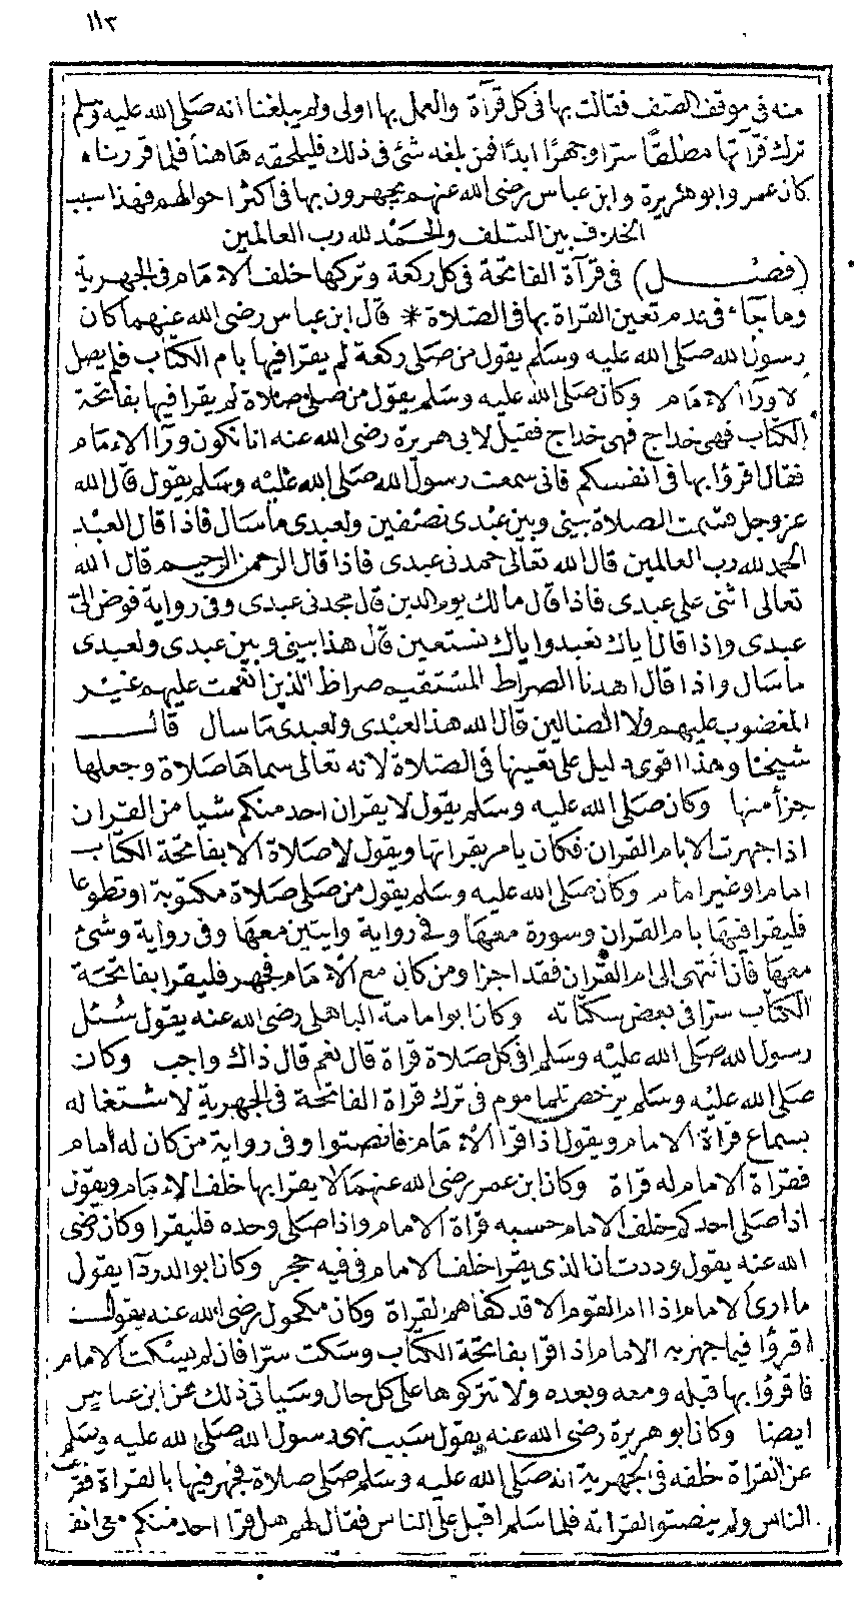 ١١٣
منه فى موقف الصنف فقالت بها فى كل قرآة والعمل بها اولى ولم يبلغنا انه صلى الله عليه وسلم
ترك قرآتها مطلقا سترا وجهرا ابدا فمن بلغه شئ فى ذلك فليلحقه هاهنا فلما قررناه
كان عمر وابو هريرة وابن عباس رضى الله عنهم يجهرون بها فى اكثر احوالهم فهذا سبب
الخلاف بين السلف والحمد لله رب العالمين
(فصل) فى قرآة الفاتحة فى كل ركعة وتركها خلف الامام فى الجهرية
وما جاء فى عدم تعين القراة بها فى الصلاة * قال ابن عباس رضى الله عنهما كان
رسول الله صلى الله عليه وسلم يقول من صلى ركعة لم يقرا فيها بام الكتاب فلم يصل
لا ورآ الامام وكان صلى الله عليه وسلم يقول من صلى صلاة لم يقرا فيها بفاتحة
الكتاب فهى خداج فهى خداج فقيل لابى هريرة رضى الله عنه انا نكون ورآ الامام
فقال اقرؤا بها فى انفسكم فانى سمعت رسول الله صلى الله عليه وسلم يقول قال الله
عز وجل قسمت الصلاة بينى وبين عبدى نصفين ولعبدى ما سال فاذا قال العبد
الحمد لله رب العالمين قال الله تعالى حمدنى عبدى فاذا قال الرحمن الرحيم قال الله
تعالى اثنى على عبدى فاذا قال مالك يوم الدين قال مجدنى عبدى وفى رواية فوض الى
عبدى واذا قال اياك نعبد واياك نستعين قال هذا بينى وبين عبدى ولعبدى
ما سال واذا قال اهدنا الصراط المستقيم صراط الذين انعمت عليهم غير
المغضوب عليهم ولا الضالين قال الله هذا لعبدى ولعبدى ما سال قال
شيخنا وهذا اقوى دليل على تعينها فى الصلاة لانه تعالى سماها صلاة وجعلها
جزأ منها وكان صلى الله عليه وسلم يقول لا يقران احد منكم شيا من القران
اذا جهرت الا بام القران فكان يامر بقراتها ويقول لا صلاة الا بفاتحة الكتاب
امام او غير امام وكان صلى الله عليه وسلم يقول من صلى صلاة مكتوبة او تطوعا
فليقرا فيها بام القران وسورة معها وفى رواية وايتين معها وفى رواية وشئ
معها فان انتهى الى ام القران فقد اجزا ومن كان مع الامام فجهر فليقرا بفاتحة
الكتاب سرا فى بعض سكتاته وكان ابو امامة الباهلى رضى الله عنه يقول سئل
رسول الله صلى الله عليه وسلم افى كل صلاة قراة قال نعم قال ذاك واجب وكان
صلى الله عليه وسلم يرخص للماموم فى ترك قراة الفاتحة فى الجهرية لاشتغاله
بسماع قراة الامام ويقول اذا قرا الامام فانصتوا وفى رواية من كان له امام
فقرآة الامام له قراة وكان ابن عمر رضى الله عنهما لا يقرا بها خلف الامام ويقول
اذا صلى احدكم خلف الامام حسبه قراة الامام واذا صلى وحده فليقرا وكان رضى
الله عنه يقول وددت ان الذى يقرا خلف الامام فى فيه حجر وكان ابو الدردآ يقول
ما ارى الامام اذا ام القوم الا قد كفاهم القراة وكان مكحول رضى الله عنه يقول
اقرؤا فيما جهر به الامام اذا قرا بفاتحة الكتاب وسكت سرا فان لم يسكت الامام
فاقرؤا بها قبله ومعه وبعده ولا تتركوها على كل حال وسياتى ذلك عن ابن عباس
ايضا وكان ابو هريرة رضى الله عنه يقول سبب نهى رسول الله صلى الله عليه وسلم
عن القراة خلفه فى الجهرية انه صلى الله عليه وسلم صلى صلاة فجهر فيها بالقراة فقر
الناس ولم ينصتوا لقراته فلما سلم اقبل على الناس فقال لهم هل قرا احد منكم معى انفا